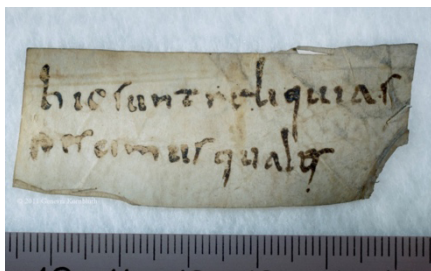 hic sunt reliquias
nescimus quales